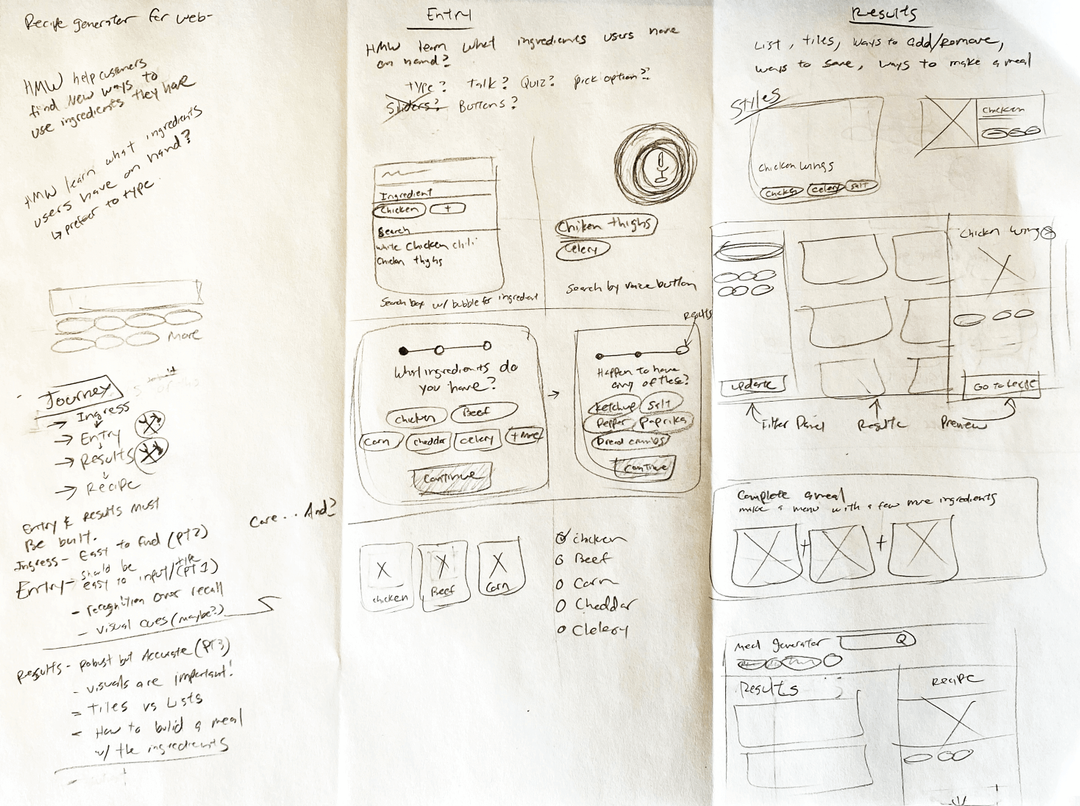 Recipe generator for web-
HMW help customers
find New ways to
use ingredients they have
HMW learn what ingredients
users have on hand?
prefer to type.
More
Journey
Ingress
Entry
Results
Recipe
Entry & Results must
Be built.
Ingress - Easy to find (PT2)
Entry - should be
easy to input/title
(PT1)
- recognition over recall
- visual cues (maybe?)
Results - Robust but Accurate (PT3)
- visuals are important!
- Tiles vs Lists
- How to build a meal
w/ the ingredients
Core... And?
Entry
HMW learn what ingredients users have
on hand?
Type? Talk? Quiz? pick option??
Sliders? Buttons?
Ingredient
Chicken +
Search
White Chicken chili
Chicken thighs
Search box w/ bubble for ingredient
Chiken thighs
Celery
Search by voice button
What ingredients do
you have?
Chicken Beef
Corn Cheddar Celery + More
Continue
Results
Happen to have
any of these?
Ketchup Salt
Pepper Paprika
Bread crumbs
Continue
chicken Beef Corn
Chicken
Beef
Corn
Cheddar
Clelery
Results
List, tiles, ways to add/remove,
ways to save, ways to make a meal
Styles
Chicken Wings
Chicken Celery Salt
Chicken
Chicken Wing
Update
Go to recipe
Filter Panel Results Preview
Complete a meal
make a menu with a few more ingredients
+ +
Meal generator
Results
Recipe